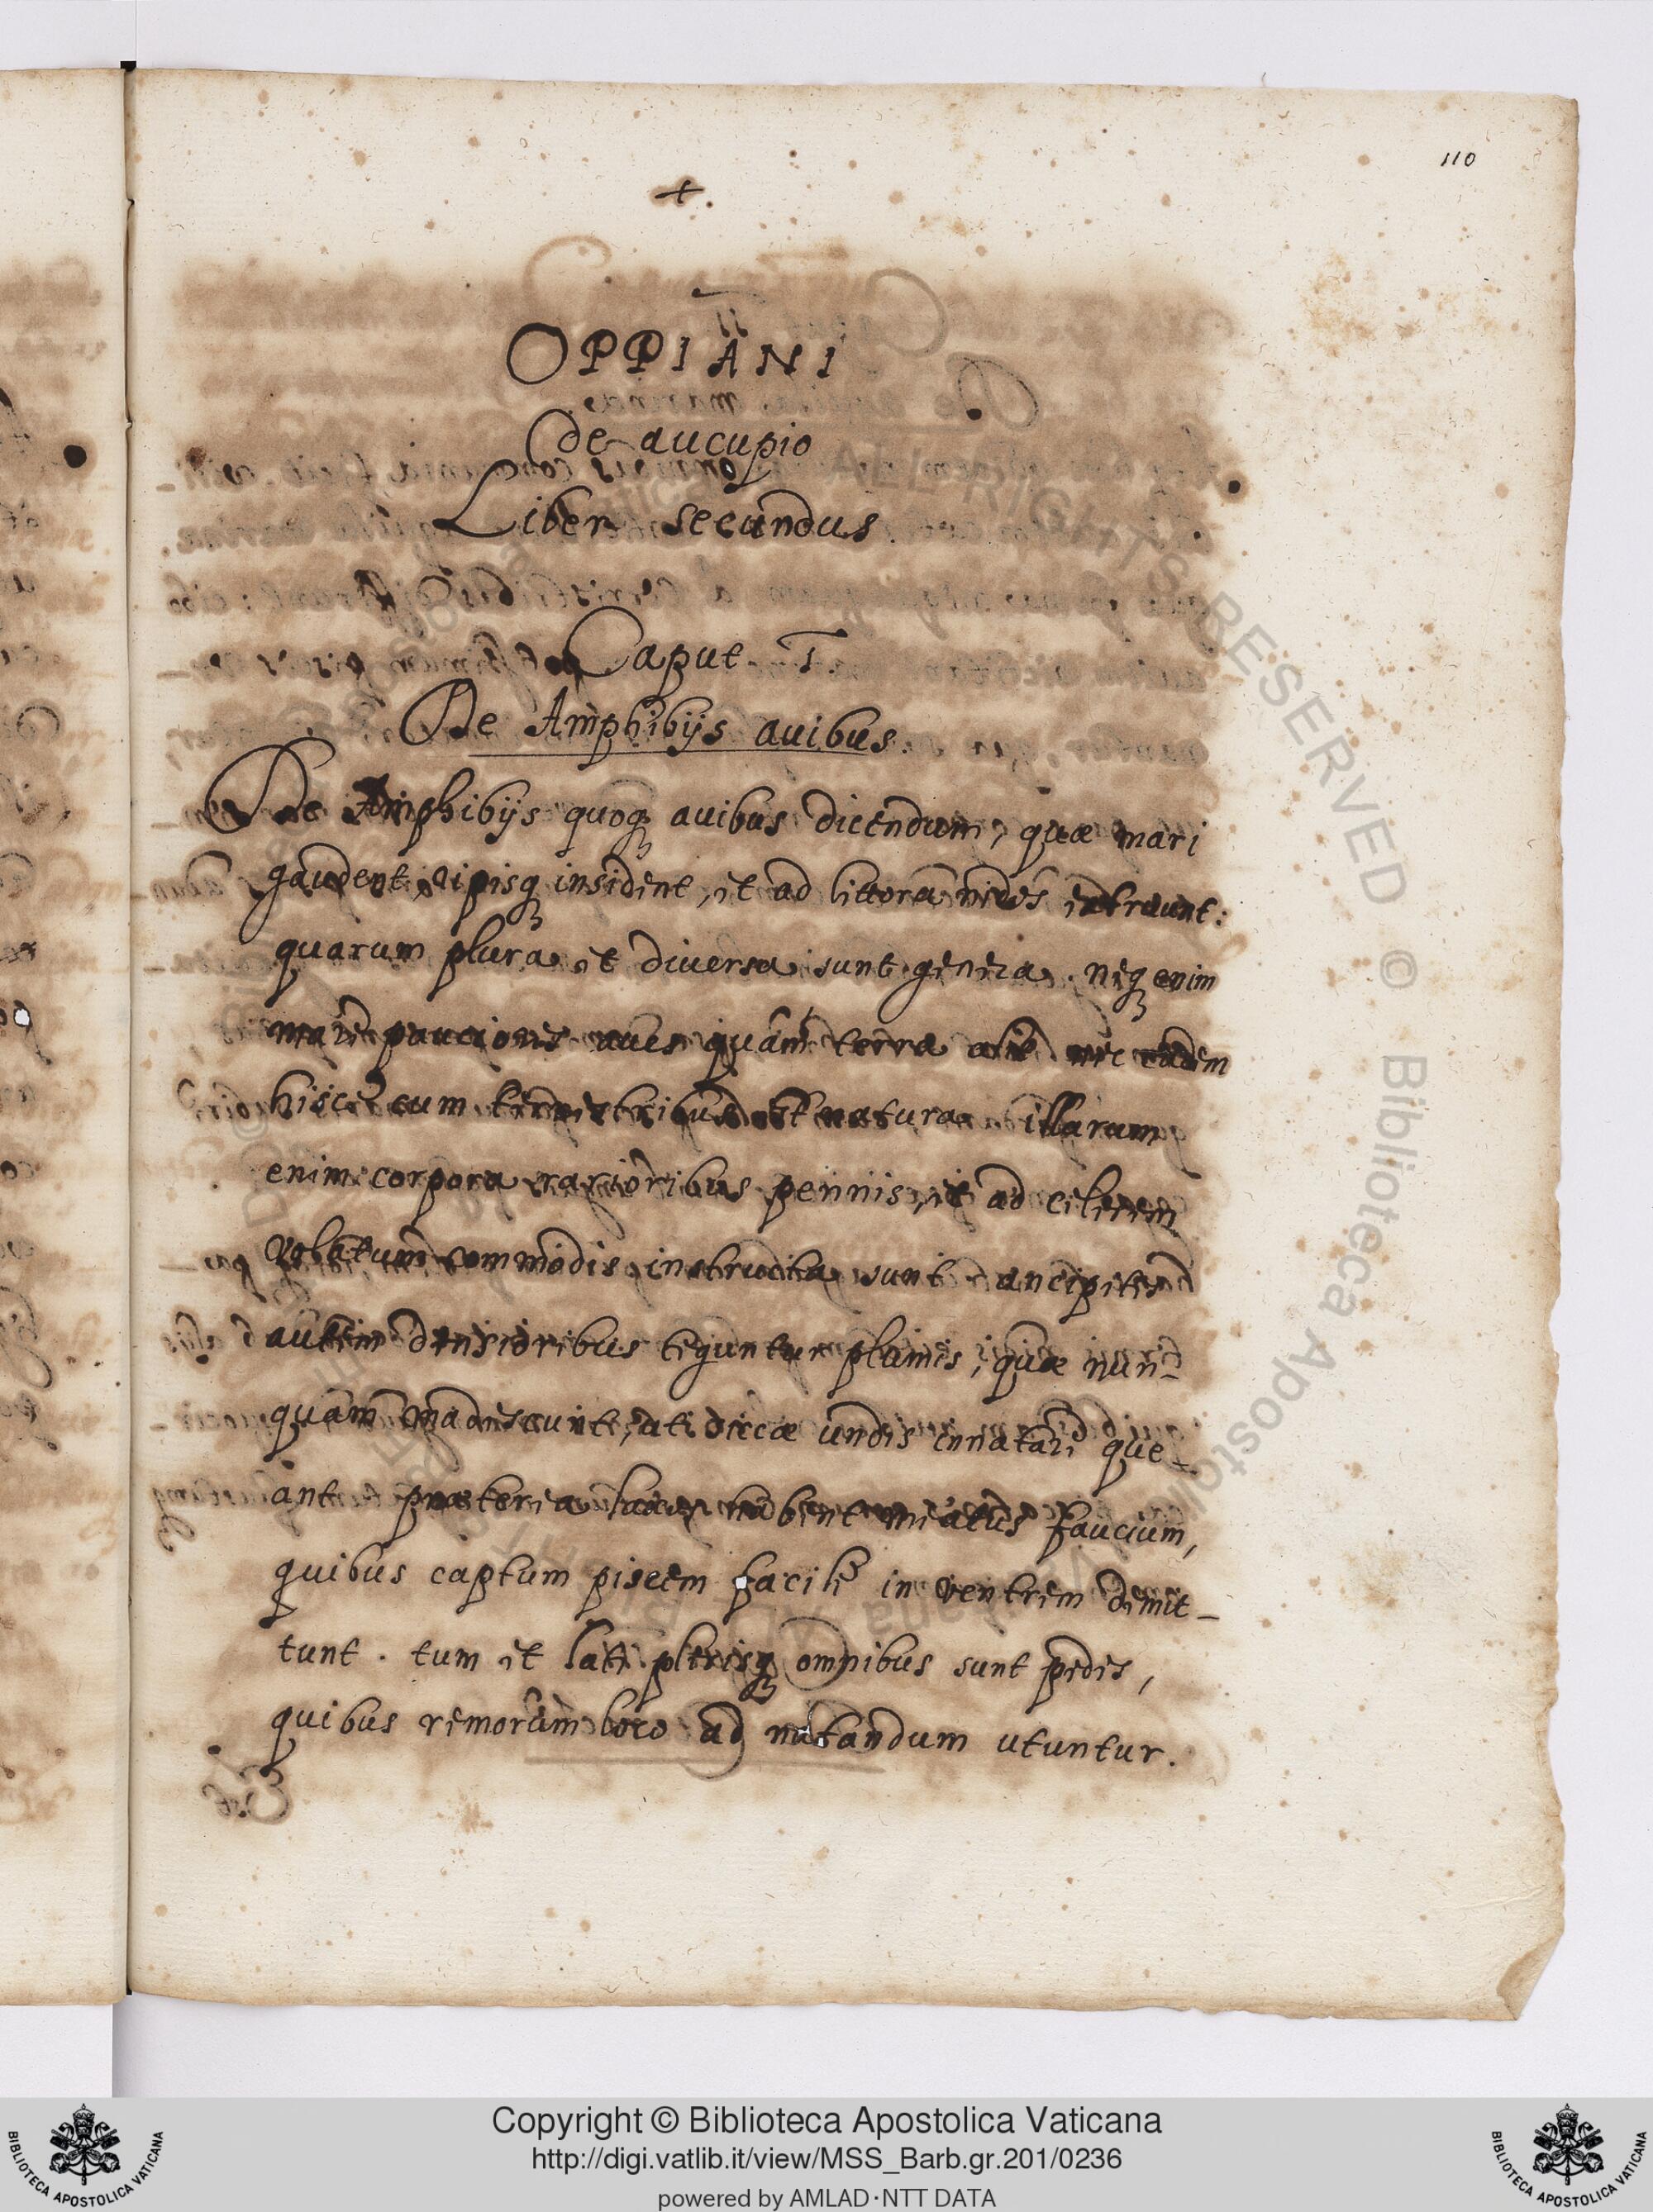 110
+.
OPPIANI
De aucupio
Liber secundus.
Caput I.
De Amphibijs auibus.
De Amphibijs quoq; auibus dicendum, quæ mari
gaudent, ripisq; insident, et ad littora nidos extruunt:
quarum plura et diuersa sunt genera. neq; enim
mare pauciores aues quam terra alit. nec eadem
hisce cum terrestribus est natura. illarum
enim corpora rarioribus pennis, et ad celerem
volatum commodis instructa sunt. ancipites
autem densioribus teguntur plumis, quæ nun-
quam madescunt, ut siccæ undis innatare que-
ant. præterea laxos habent meatus faucium,
quibus captum piscem facilè in ventrem demit-
tunt. tum et lati plerisq; omnibus sunt pedes,
quibus remorum loco ad natandum utuntur.
ALL RIGHTS RESERVED © Biblioteca Apostolica Vaticana
Copyright © Biblioteca Apostolica Vaticana
http://digi.vatlib.it/view/MSS_Barb.gr.201/0236
powered by AMLAD·NTT DATA
BIBLIOTECA APOSTOLICA VATICANA
BIBLIOTECA APOSTOLICA VATICANA